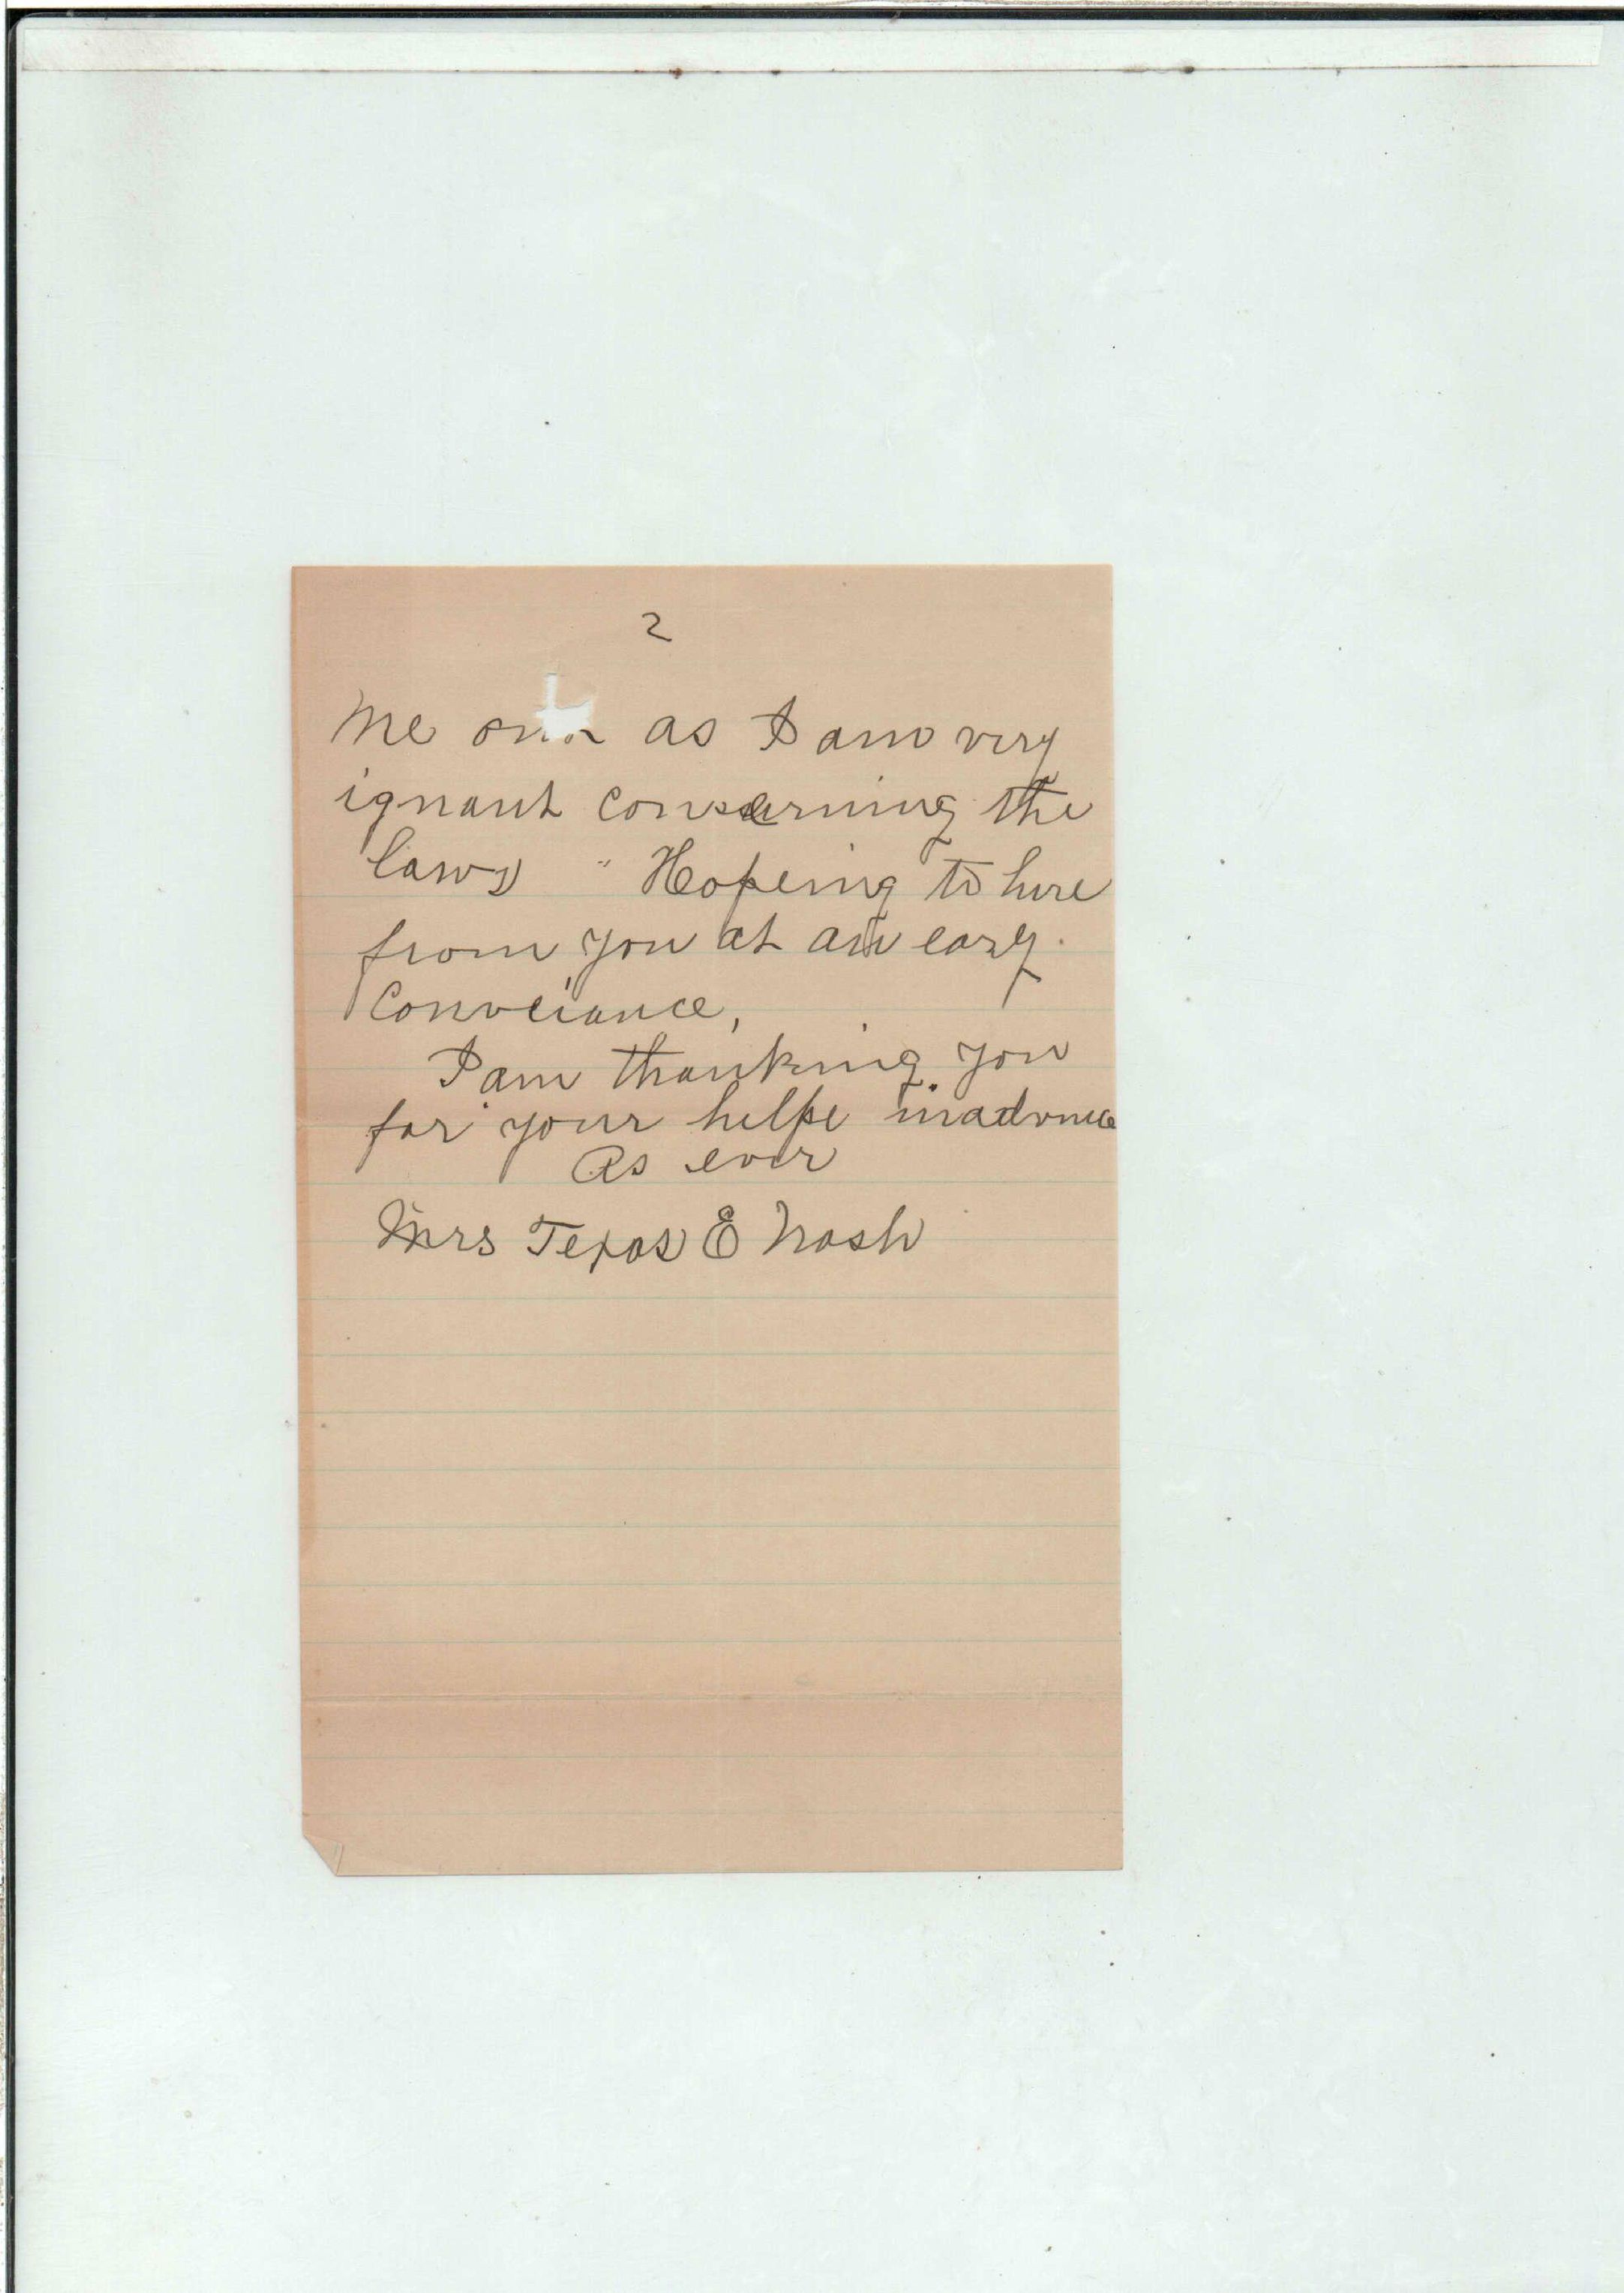 2
Me as I am very
ignant conserning the
laws " Hopeing to here
from you at an eary
Conveiance,
I am thanking you
for your helpe inadvance
As ever
Mrs Texas E Nash